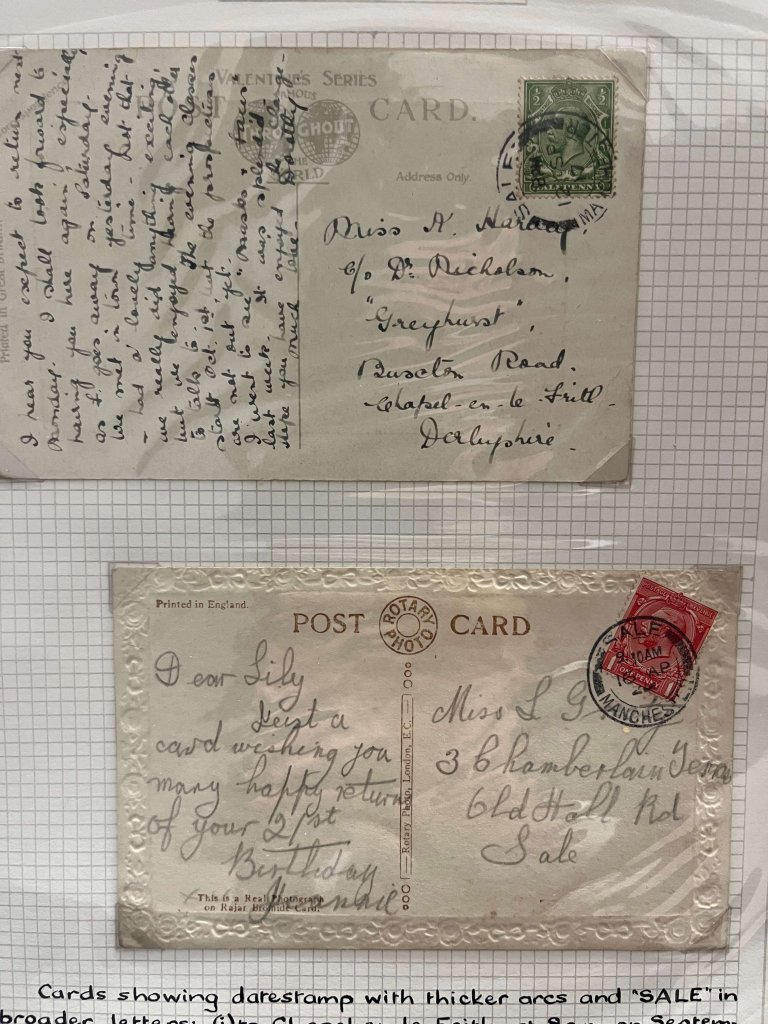 VALENTINE'S SERIES
POST CARD.
FAMOUS
THROUGHOUT
THE
WORLD
Address Only.
Printed in Great Britain
I hear you expect to return next
Monday. I shall look forward to
having you here again, especially
as L. goes away on Saturday.
We met in town yesterday evening
& had a lovely time - not that
we really did anything exciting
but we enjoyed having each other
to talk to. The evening classes
start Oct. 1st but the prospectuses
are not out yet.
I went to see "Masks & Faces"
last week. It was splendid.
Hope you have enjoyed the change.
Much love. Dorothy
½ ½
HALFPENNY
SALE
MANCHESTER
Miss N. Harvey
c/o Dr. Nicholson,
"Greyhurst",
Buxton Road.
Chapel-en-le-Frith.
Derbyshire.
Printed in England.
POST CARD
ROTARY
PHOTO
Rotary Photo, London, E.C.
1 ONE PENNY 1
SALE
9 10AM
AP
MANCHESTER
Dear Lily
Just a
card wishing you
many happy returns
of your 21st
Birthday
Miss L
3 Chamberlain Terr
Old Hall Rd
Sale
This is a Real Photograph
on Rajar Bromide Card.
Cards showing datestamp with thicker arcs and "SALE" in
broader letters: (i) to Chapel en le Frith